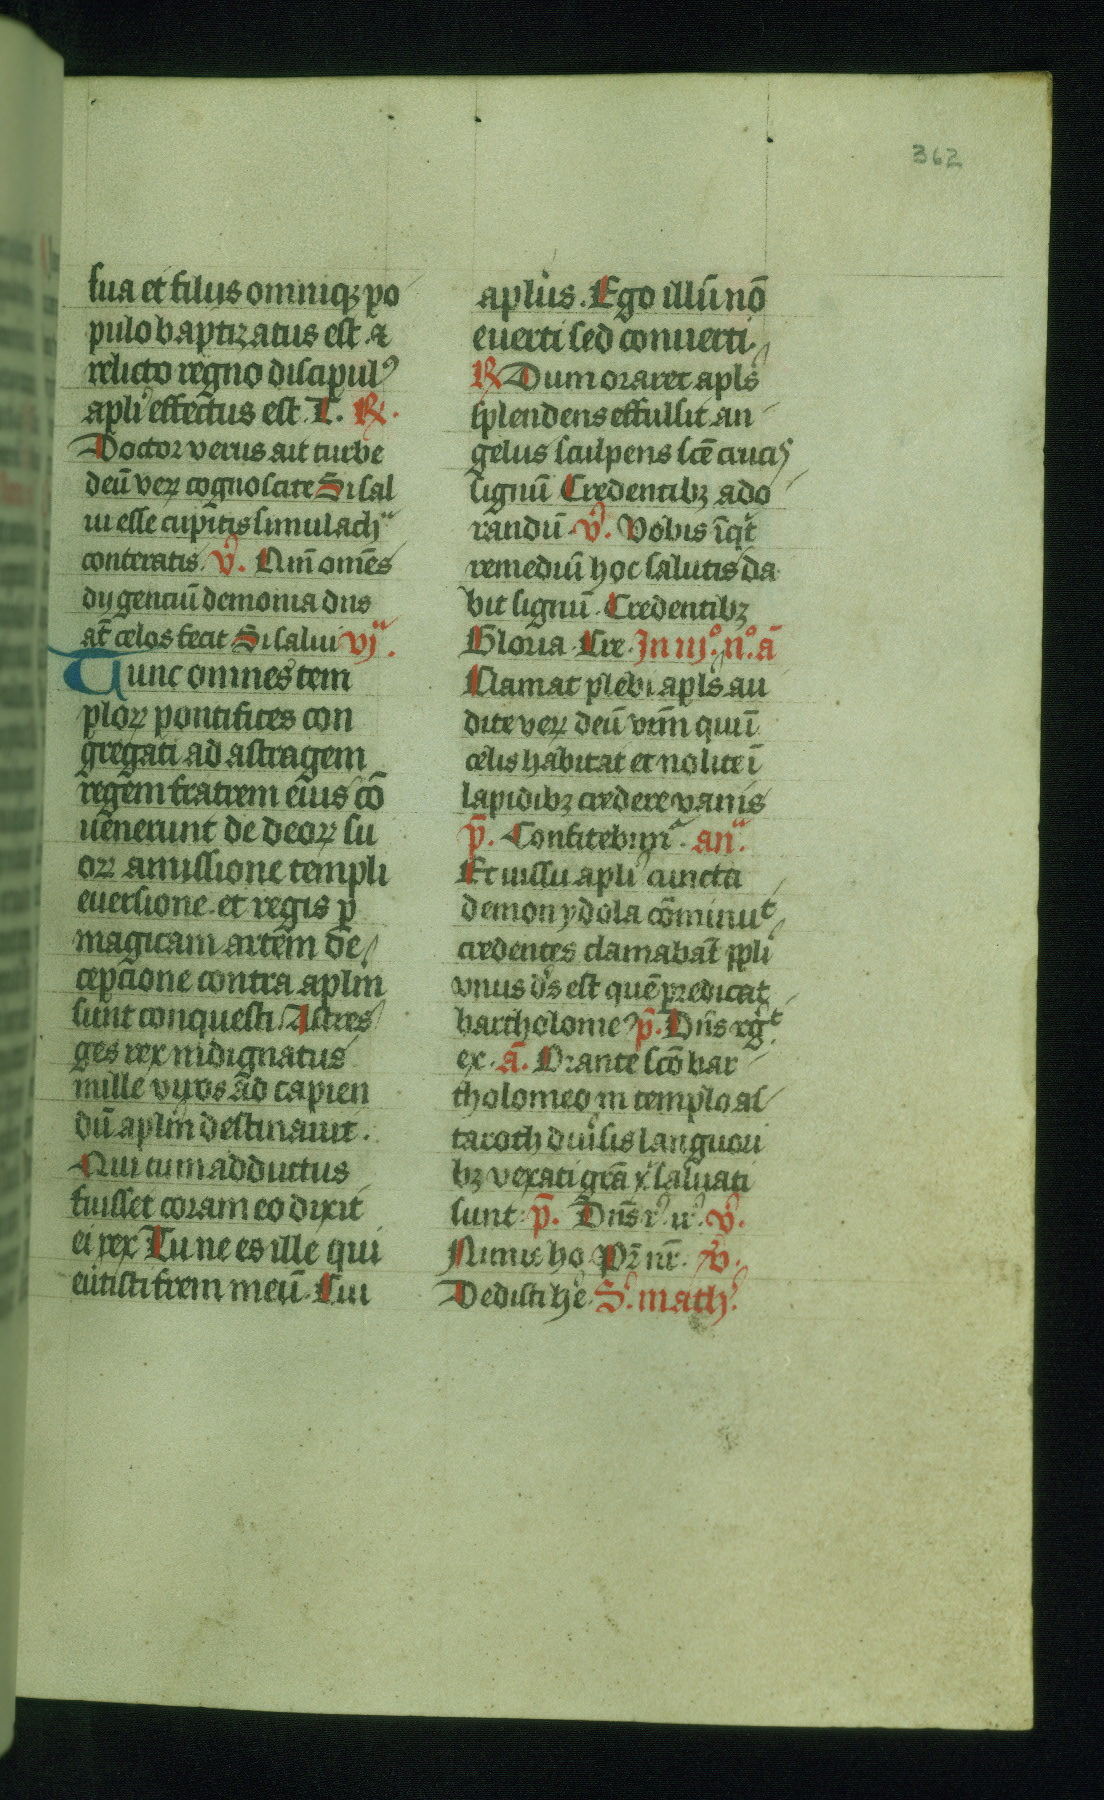 362
sua et filiis omniqꝫ po
pulo baptizatus est ⁊
relicto regno discipulꝰ
apli effectus est. T. ℞.
Doctor verus ait turbe
deū veꝝ cognoscite Si sal
ui esse cupitis simulachᵃ
conteratis. ℣. Qm̄ om̄es
dij gentiū demonia dns
at̄ celos fecit Si salui vjᵃ.
Tunc omnes tem
ploꝝ pontifices con
gregati ad astragem
regem fratrem eius cō
uenerunt de deoꝝ su
oꝝ amissione templi
euersione et regis p̄
magicam artem de
cepcione contra aplm
sunt conquesti Astres
ges rex indignatus
mille vyros ad capien
dū aplm destinauit.
Qui cum adductus
fuisset coram eo dixit
ei rex Tu ne es ille qui
eūtisti frem meū. Cui
aplus. Ego illū nō
euerti sed conuerti.
℞ Dum oraret apls
splendens effulsit an
gelus sculpens sce crucis
signū Credentibꝫ ado
randū. ℣. Vobis īqͥt
remediū hoc salutis da
bit signū. Credentibꝫ
Gloria. Cre. In iijº. nº. ā
Clamat plebi apls au
dite veꝝ deū vrm̄ qui ī
celis habitat et nolite ī
lapidibꝫ credere vanis
p̄. Confitebim̄. anᵃ.
Et iussu apli cuncta
demon ydola cōminut
credentes clamabāt ppli
vnus ds est quē predicat
bartholomeꝰ p̄. Dn̄s rgᵗ
ex. ā. Orante scō bar
tholomeo in templo as
taroth diuisis languori
bꝫ vexati grā x salvati
sunt p̄. Dn̄s r. ir. ℣.
Nimis ho. Pr̄ nr̄. ℣.
Dedisti he. S. math.